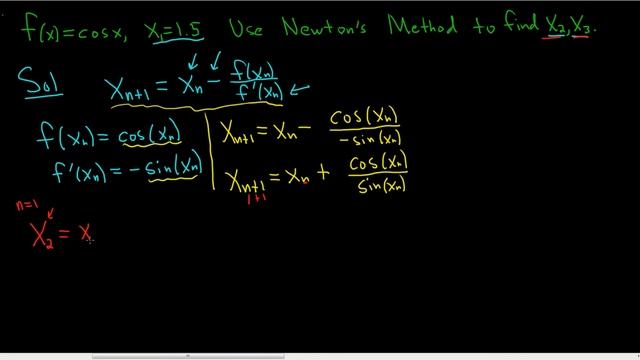 f(x) = cos x, x₁ = 1.5 Use Newton's Method to find x₂, x₃.
Sol xₙ₊₁ = xₙ − f(xₙ)/f'(xₙ)
f(xₙ) = cos(xₙ)
f'(xₙ) = − sin(xₙ)
xₙ₊₁ = xₙ − cos(xₙ)/−sin(xₙ)
xₙ₊₁ = xₙ + cos(xₙ)/sin(xₙ)
1+1
n=1
x₂ = x